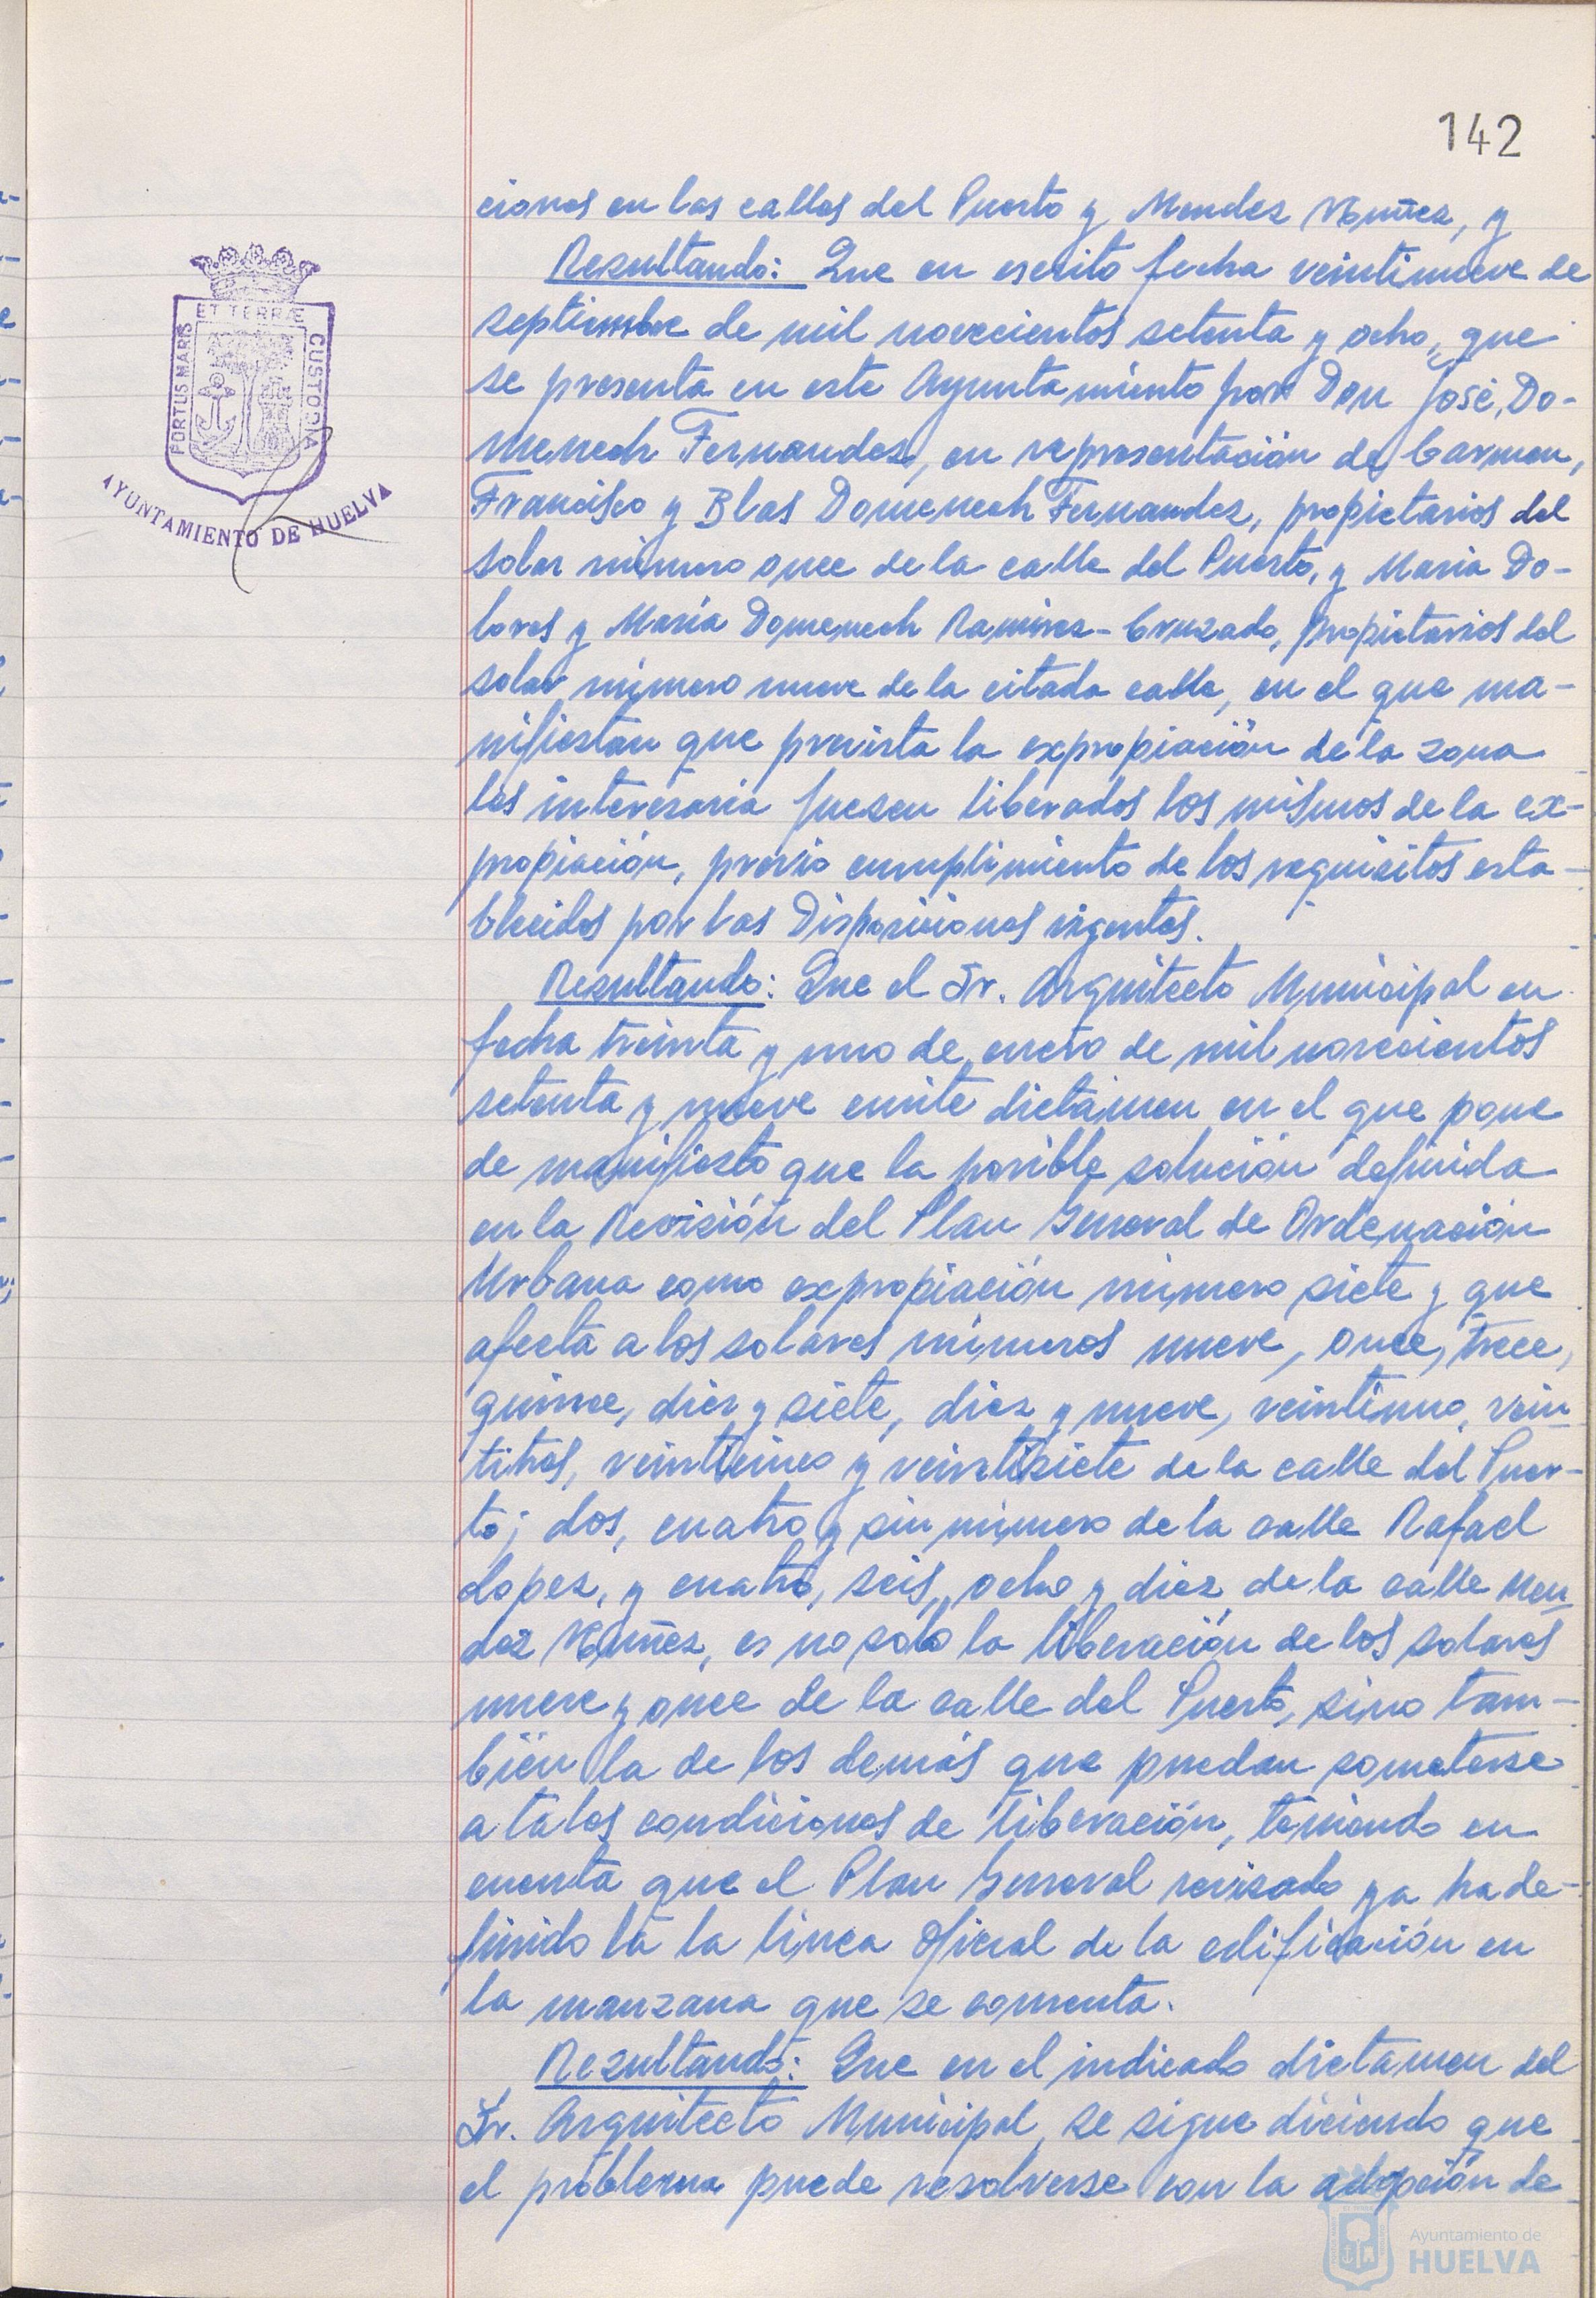 142
ciones en las calles del Puerto y Mendez Nuñez, y
Resultando: Que en escrito fecha veintinueve de
septiembre de mil novecientos setenta y ocho, que
se presenta en este Ayuntamiento por Don José Do-
menech Fernandez, en representación de Carmen,
Francisco y Blas Domenech Fernandez, propietarios del
solar número once de la calle del Puerto, y Maria Do-
lores y María Domenech Ramirez-Cruzado, propietarios del
solar número nueve de la citada calle, en el que ma-
nifiestan que prevista la expropiación de la zona
les interesaria fuesen liberados los mismos de la ex-
propiación, previo cumplimiento de los requisitos esta-
blecidos por las Disposiciones vigentes.
Resultando: Que el Sr. Arquitecto Municipal en
fecha treinta y uno de enero de mil novecientos
setenta y nueve emite dictamen en el que pone
de manifiesto que la posible solución definida
en la Revisión del Plan General de Ordenación
Urbana como expropiación número siete y que
afecta a los solares números nueve, once, trece,
quince, diez y siete, diez y nueve, veintiuno, vein
titres, veinticinco y veintisiete de la calle del Puer-
to; dos, cuatro y sin número de la calle Rafael
Lopez, y cuatro, seis, ocho y diez de la calle Men
dez Nuñez, es no solo la liberación de los solares
nueve y once de la calle del Puerto, sino tam-
bién la de los demás que puedan someterse
a tales condiciones de liberación, teniendo en
cuenta que el Plan General revisado ya ha de-
finido la la linea oficial de la edificación en
la manzana que se comenta.
Resultando: Que en el indicado dictamen del
Sr. Arquitecto Municipal, se sigue diciendo que
el problema puede resolverse con la adopción de
ET TERRÆ
PORTUS MARIS
CUSTODIA
AYUNTAMIENTO DE HUELVA
Ayuntamiento de
HUELVA